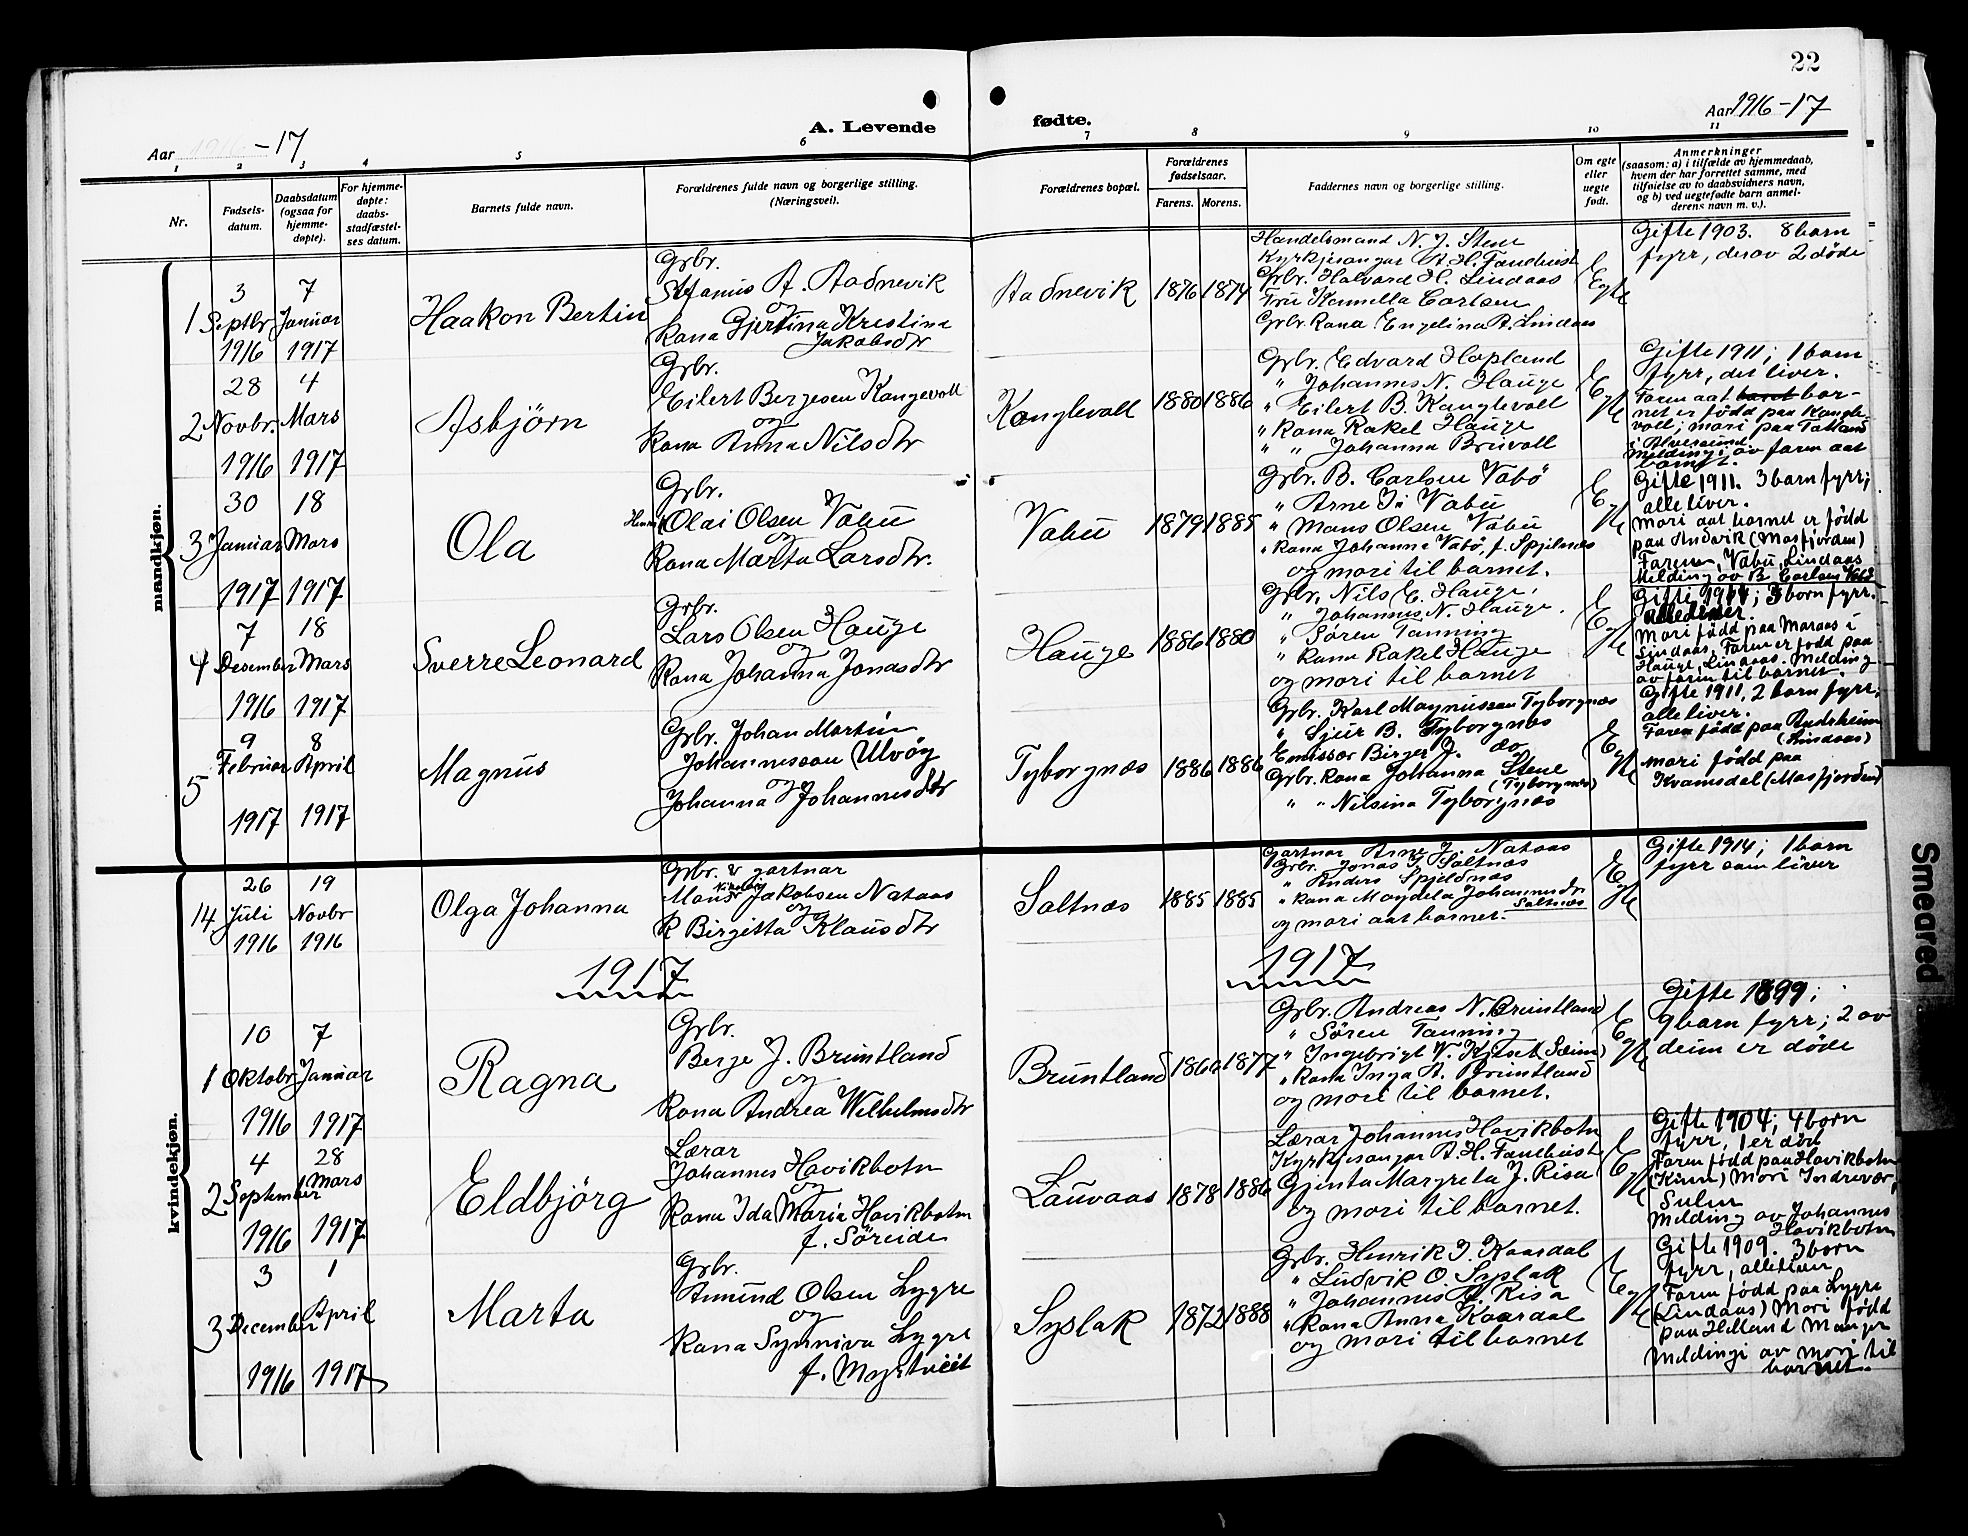 22
Aar 1916-17
A. Levende
fødte.
Aar 1916-17
1
2
3
4
5
6
7
8
9
10
11
Nr.
Fødsels-
datum.
Daabsdatum
(ogsaa for
hjemme-
døpte).
For hjemme-
døpte:
daabs-
stadfæstel-
ses datum.
Barnets fulde navn.
Forældrenes fulde navn og borgerlige stilling.
(Næringsvei).
Forældrenes bopæl.
Forældrenes
fødselsaar.
Farens.
Morens.
Faddernes navn og borgerlige stilling.
Om egte
eller
uegte
født.
Anmerkninger
(saasom: a) i tilfælde av hjemmedaab,
hvem der har forrettet samme, med
tilføielse av to daabsvidners navn,
og b) ved uegtefødte barn anmel-
derens navn m. v.).
mandkjøn.
1
3
Septbr
1916
7
Januar
1917
Haakon Bertin
Grbr.
Stefanus A. Aadnevik
og
Kona Gjertina Kristina
Jakobsdtr
Aadnevik
1876
1874
Handelsmand N. J. Stene
Kyrkjesangar A. H. Fandluist
Grbr. Halvard H. Lindaas
Fru Kamella Carlsen
Grbr. Kona Engelina A. Lindaas
Egte
Gifte 1903. 8 barn
fyrr, derav 2 døde
2
28
Novbr.
1916
4
Mars
1917
Asbjörn
Grbr.
Eilert Bergesen Kangevoll
og
Kona Anna Nilsdtr
Konglevoll
1880
1886
Grbr. Edvard Hopland
" Johannes N. Hauge
" Eilert B. Kanglevoll
" Kona Rakel Hauge
" " Johanna Bruvoll
Egte
Gifte 1911; 1 barn
fyrr, det liver.
Faren aat barnet bar-
net er född paa Kangle-
voll; mori paa Tatland
i Alversund
Melding: av faren aat
barnet.
3
30
Januar
1917
18
Mars
1917
Ola
Grbr.
Olai Olsen Vabü
og
Kona Marta Larsdtr.
Vabü
1879
1885
Grbr. B. Carlsen Vabö
" Arne J. Vabü
" Mons Olsen Vabü
" Kona Johanna Vabö, f. Spjelnæs
og mori til barnet.
Egte
Gifte 1911. 3 barn fyrr;
alle liver.
Mori aat barnet er född
paa Andvik (Masfjorden)
Faren, Vabü, Lindaas
Melding av B. Carlsen Vabö
4
7
Desember
1916
18
Mars
1917
Sverre Leonard
Grbr.
Lars Olsen Hauge
og
Kona Johanna Jonasdtr
Hauge
1886
1880
Grbr. Nils E. Hauge,
" Johannes N. Hauge.
" Søren Tanning
" Kona Rakel Hauge
og mori til barnet
Egte
Gifte 1914; 3 born fyrr.
alle liver.
Mori född paa Maraas i
Lindaas, Faren er född paa
Hauge, Lindaas. Melding
av faren til barnet.
5
9
Februar
1917
8
April
1917
Magnus
Grbr. Johan Martin
Johannessen Ulvög
og
Johanna Johannesdtr
Tyborgnæs
1886
1886
Grbr. Karl Magnussen Tyborgnæs
" Sjur B. Tyborgnæs
Emissær Birger J. do
Grbr. Kona Johanna Stene
(Tyborgnæs)
" " Nilsina Tyborgnæs
Egte
Gifte 1911, 2 barn fyrr,
alle liver.
Faren född paa Andrheim
(Lindaas)
mori född paa
Kvamsdal (Masfjorden)
kvindekjøn.
14
26
Juli
1916
19
Novbr
1916
Olga Johanna
Grbr. & gartnar
Mons Nikolai Jakobsen Nataas
og
K Birgitta Klausdtr
Saltnæs
1885
1885
Gartnar Arne J. Nataas
Grbr. Jonas J. Saltnæs
" Anders Spjeldnæs
" Kona Magdela Johannesdr
Saltnæs
og mori aat barnet.
Egte
Gifte 1914; 1 barn
fyrr som liver
1917
1917
1
10
Oktobr
1916
7
Januar
1917
Ragna
Grbr.
Berge J. Bruntland
og
Kona Andrea Wilhelmsdtr
Bruntland
1877
Grbr. Andreas N. Bruntland
" Søren Tanning
" Ingebrigt V. Kjeset (Sæim)
" Kona Inga A. Bruntland
og mori til barnet.
Egte
Gifte 1899;
9 barn fyrr; 2 av
deim er döde
2
4
September
1916
28
Mars
1917
Eldbjörg
Lærar
Johannes Hovikbotn
og
Kona Ida Maria Hovikbotn
f. Søreide
Lauvaas
1878
1886
Lærar Johannes Hovikbotn
Kyrkjesangar A. H. Fandluist
Gjenta Margreta J. Risa
og mori til barnet.
Egte
Gifte 1904; 4 born
fyrr, 1 er död
Faren född paa Hovikbotn
(Kinn) Mori Indrevær,
Sulen
Melding av Johannes
Hovikbotn
3
3
December
1916
1
April
1917
Marta
Grbr.
Amund Olsen Lygre
og
Kona Synniva Lygre
f. Myrtveit
Syslak
1872
1888
Grbr. Henrik J. Kaardal
" Ludvik O. Syslak
" Johannes A. Risa
" Kona Anna Kaardal
og mori til barnet
Egte
Gifte 1909. 3 born
fyrr, alle liver
Faren född paa Lygre
(Lindaas) Mori född
paa Helland Manger
Meldingi av mori til
barnet.
Smeared